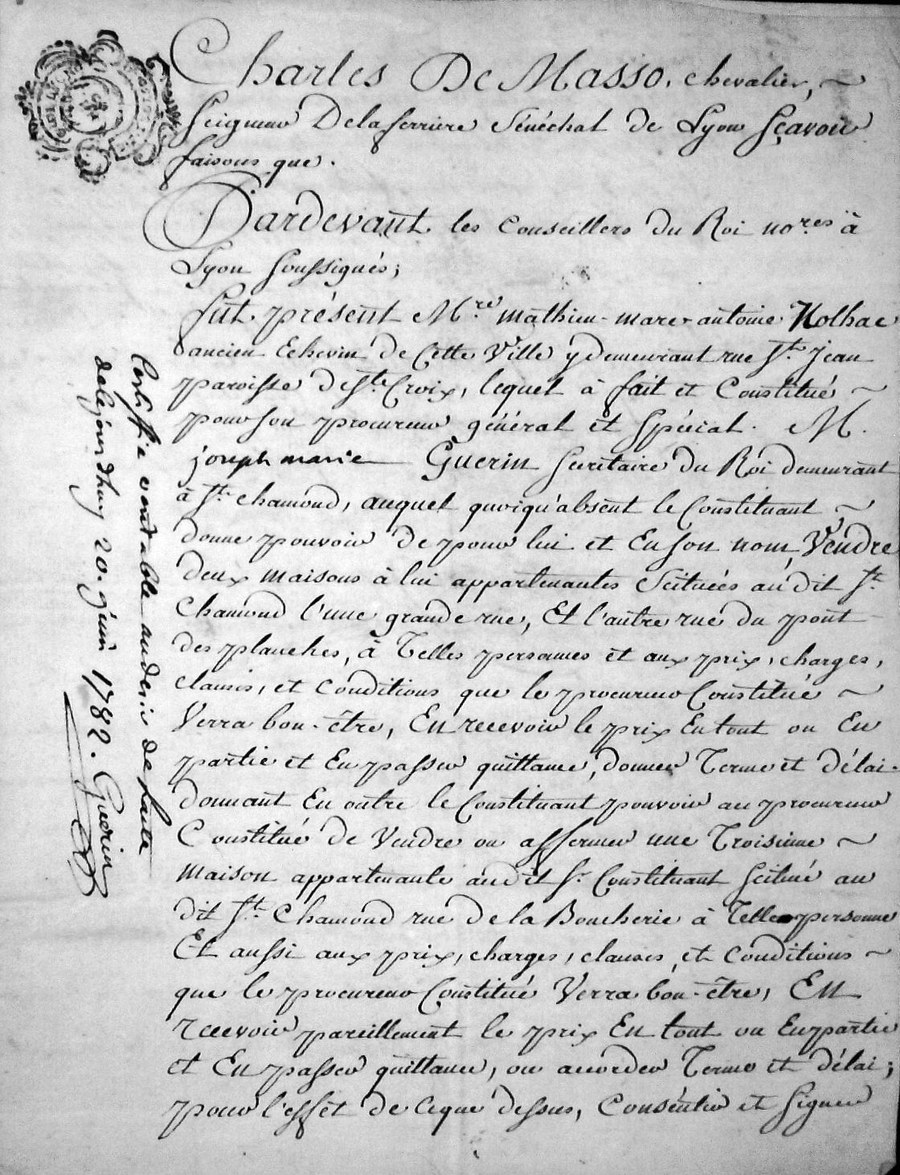 Charles De Masso, chevalier,
Seigneur Delaferriere Sénéchal de Lyon Sçavoir
faisons que.
Pardevant les Conseillers du Roi no.res à
Lyon Soussignés;
fut présent M.re mathieu-marc-antoine Nolhac
ancien Echevin de Cette Ville y demeurant rue S.t Jean
paroisse de S.te Croix, lequel à fait et Constitué
pour son procureur général et Spécial. M.
joseph marie Guerin Secrétaire du Roi demeurant
à S.t chamond, auquel quoiqu'absent le Constituant
donne pouvoir de pour lui et En son nom, Vendre
deux maisons à lui appartenantes Scituées au dit S.t
Chamond l'une grande rue, Et l'autre rue du pont
des planches, à Telles personnes et aux prix, charges,
clauses, et Conditions que le procureur Constitué
Verra bon-être, En recevoir le prix En tout ou En
partie et En passer quittance, donner Terme et délai.
donnant En outre le Constituant pouvoir au procureur
Constitué de Vendre ou affermer une Troisieme
maison appartenante audit S.r Constituant Scitué au
dit S.t Chamond rue de la Boucherie à Telle personne
Et aussi aux prix, charges, clauses, et Conditions
que le procureur Constitué Verra bon-être, En
recevoir pareillement le prix En tout ou En partie
et En passer quittance, ou accorder Terme et délai;
pour l'effet de Ceque dessus, Consentir et Signer
Certiffié veritable au desir de lacte
de cejourdhuy 20. juin 1782. Guerin